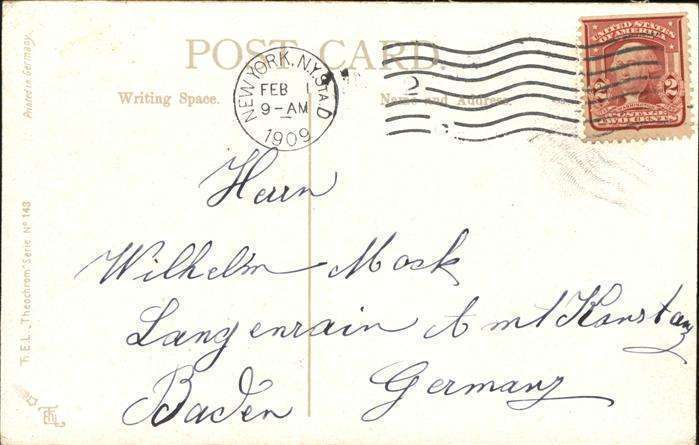 POST CARD
Writing Space.
Name and Address.
NEW YORK, N.Y. STA. D
FEB 1
9-AM
1909
UNITED STATES
OF AMERICA
2 2
POSTAGE
TWO CENTS
Herrn
Wilhelm Mock
Langenrain Amt Konstanz
Baden Germany
Printed in Germany.
T.E.L. „Theochrom" Serie Nº 143